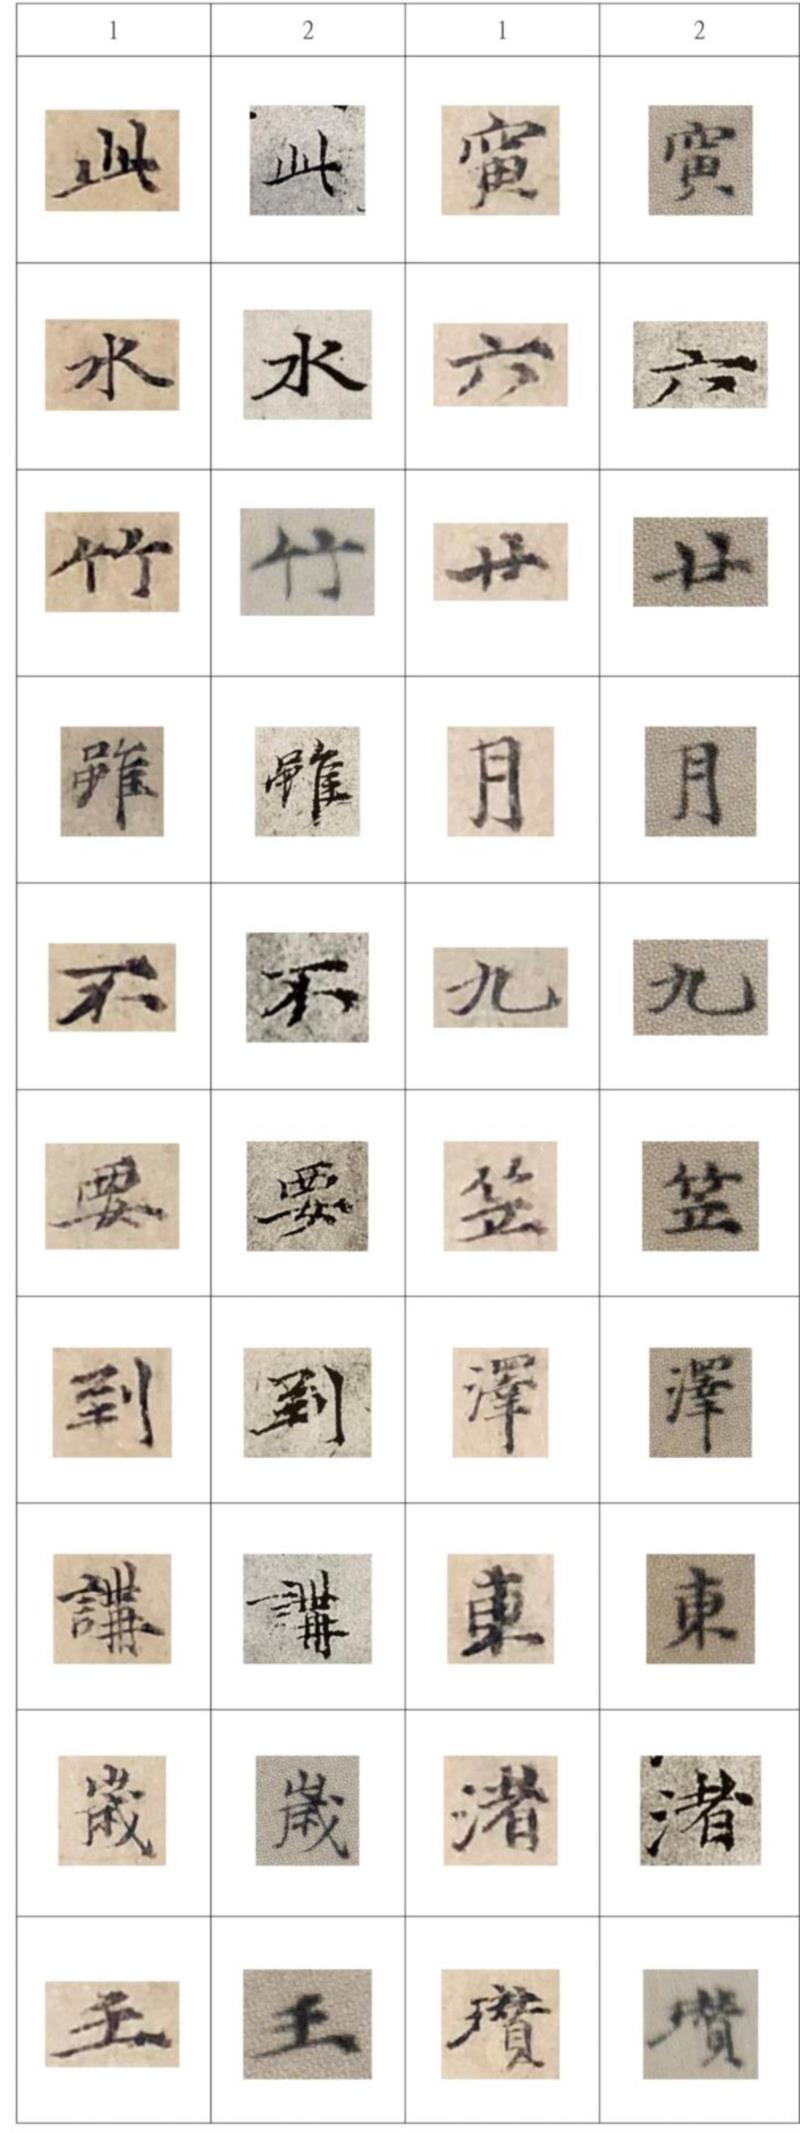 1 2 1 2
此 此 寅 寅
水 水 六 六
竹 竹 廿 廿
雖 雖 月 月
不 不 九 九
要 要 笠 笠
到 到 澤 澤
講 講 東 東
歲 歲 渚 渚
王 王 瓚 瓚